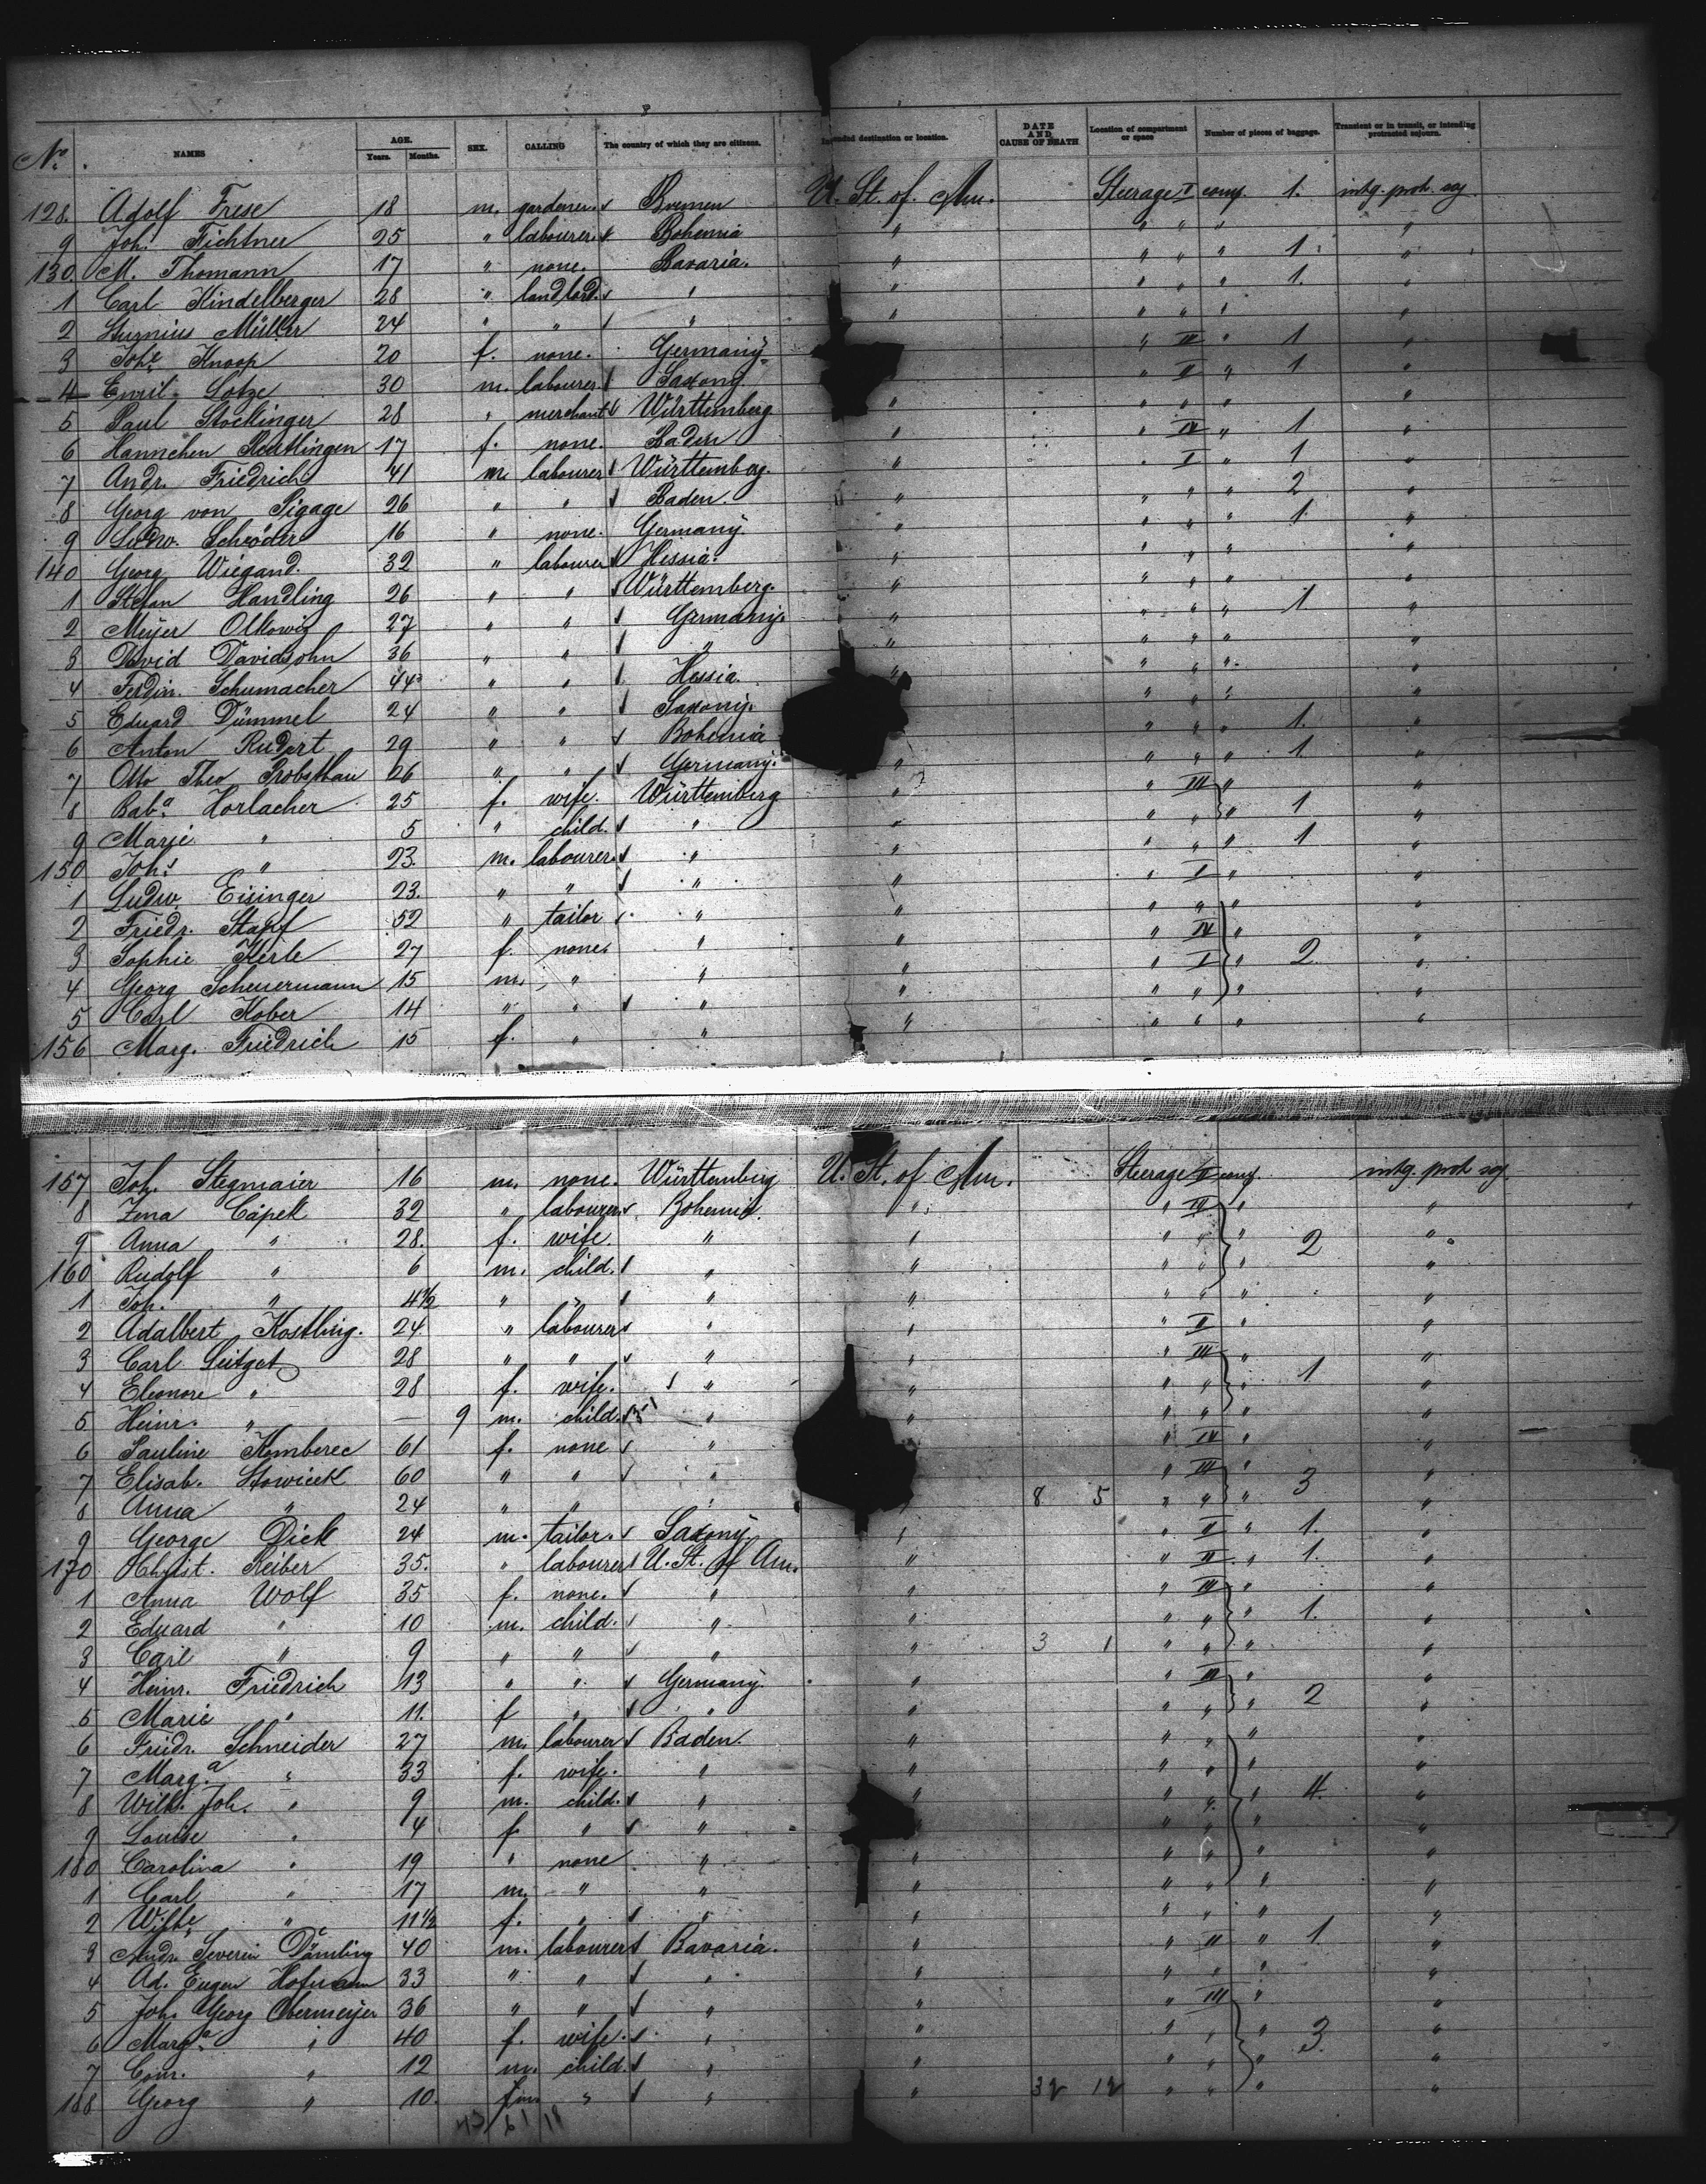 8
No. NAMES AGE. Years. Months. SEX. CALLING The country of which they are citizens. Intended destination or location. DATE AND CAUSE OF DEATH Location of compartment or space Number of pieces of baggage. Transient or in transit, or intending protracted sojourn.
128. Adolf Frese 18 m. gardener Bremen U. St. of Am. Steerage I comp. 1. intg. prot. soj.
9 Joh. Fichtner 25 " labourer Bohemia " " " " "
130 M. Thomann 17 " none. Bavaria. " " " " 1. "
1 Carl Kindelberger 28 " landlord " " " " " 1. "
2 Müller 24 " " " " " " " "
3 Johe Knoop 20 f. none. Germany " " III " 1 "
4 Emil Lotze 30 m. labourer Saxony " " II " 1 "
5 Paul Stocklinger 28 " merchant Württemberg " " " " "
6 Hannchen Reuttlingen 17 f. none. Baden " " IV " 1. "
7 Andr. Friedrich 41 m. labourer Württemberg. " " I " 1 "
8 Georg von Sigage 26 " " Baden. " " " " 2 "
9 Ludw. Schröder 16 " none. Germany. " " " " 1. "
140 Georg Wiegand. 32 " labourer Hessia. " " " " "
1 Stefan Handling 26 " " Württemberg. " " " " "
2 Meyer Olkowig 27 " " Germany. " " " " 1 "
3 David Davidsohn 36 " " " " " " " "
4 Ferdin. Schumacher 44 " " Hessia. " " " " "
5 Eduard Dümmel 24 " " Saxony. " " " " "
6 Anton Rudert 29 " " Bohemia " " " " 1. "
7 Otto Theo Probsthan 26 " " Germany. " " " " 1. "
8 Baba. Horlacher 25 f. wife. Württemberg " " III " "
9 Marie " 5 " child. " " " " " 1 "
150 Johs. " 23. m. labourer " " " " " 1 "
1 Ludw. Eisinger 23. " " " " " I " "
2 Friedr. Stapf 52 " tailor " " " " " "
3 Sophie Kerle 27 f. none. " " " IV " "
4 Georg Scheuermann 15 m. " " " " I " 2. "
5 Carl Kober 14 " " " " " " " "
156 Marg. Friedrich 15 f. " " " " " " "
157 Joh. Stegmaier 16 m. none. Württemberg U. St. of Am. Steerage II comp. intg. prot. soj.
8 Zena Capek 32 " labourer Bohemia. " " III " "
9 Anna " 28. f. wife. " " " " " 2 "
160 Rudolf " 6 m. child. " " " " " "
1 Joh. " 4 1/2 " " " " " " " "
2 Adalbert Kostling. 24 " labourer " " " II " "
3 Carl Seitget 28 " " " " " III " "
4 Eleonore " 28 f. wife. " " " " " 1 "
5 Heinr. " — 9 m. child. " " " " " "
6 Pauline Komberec 61 f. none " " " IV " "
7 Elisab. Stowicek 60 " " " " " III " 3 "
8 Anna " 24 " " " " 8 5 " " " "
9 George Dick 24 m. tailor. Saxony " " II " 1. "
170 Christ. Reiber 35. " labourer U. St. of Am. " " II " 1. "
1 Anna Wolf 35 f. none. " " " III " "
2 Eduard " 10 m. child. " " " " " 1. "
3 Carl " 9 " " " " 3 1 " " " "
4 Heinr. Friedrich 13 " " Germany. " " III " "
5 Marie " 11. f " " " " " " 2 "
6 Friedr. Schneider 27 m. labourer Baden. " " " " "
7 Marg.a " 33 f. wife. " " " " " "
8 Wilh. Joh. " 9 m. child. " " " " " 4. "
9 Louise " 4 f. " " " " " " "
180 Carolina " 19 " none " " " " " "
1 Carl " 17 m. " " " " " " "
2 Wilhe " 11 1/2 f. " " " " " " "
3 Andr. Severin Dömling 40 m. labourer Bavaria. " " II " 1. "
4 Ad. Eugen Hofmann 33 " " " " " " " "
5 Joh. Georg Obermeyer 36 " " " " " III " "
6 Marga. " 40 f. wife. " " " " " 3. "
7 Conr. " 12 m. child. " " " " " "
188 Georg " 10. m " " " 32 12 " " " "